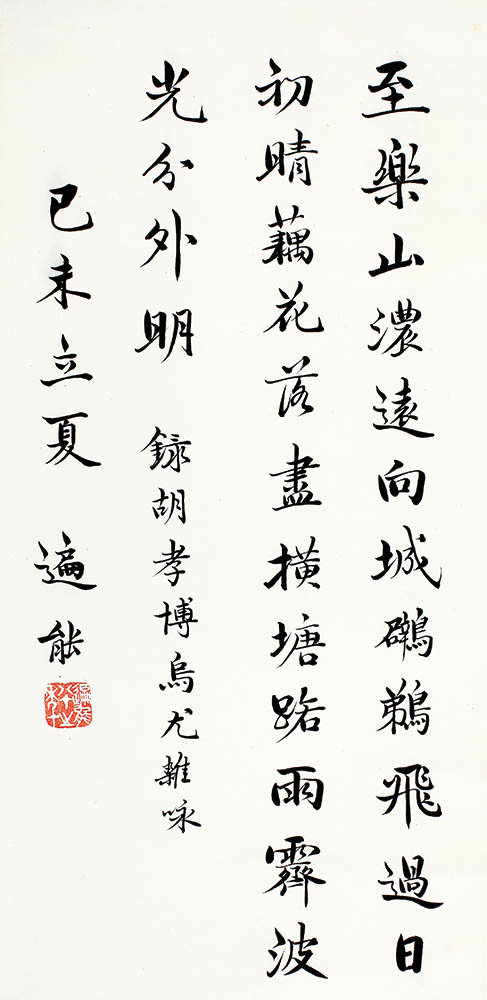 至樂山濃遠向城鸊鵜飛過日
初晴藕花落盡橫塘路雨霽波
光分外明 錄胡孝博烏尤雜咏
己未立夏 遍能